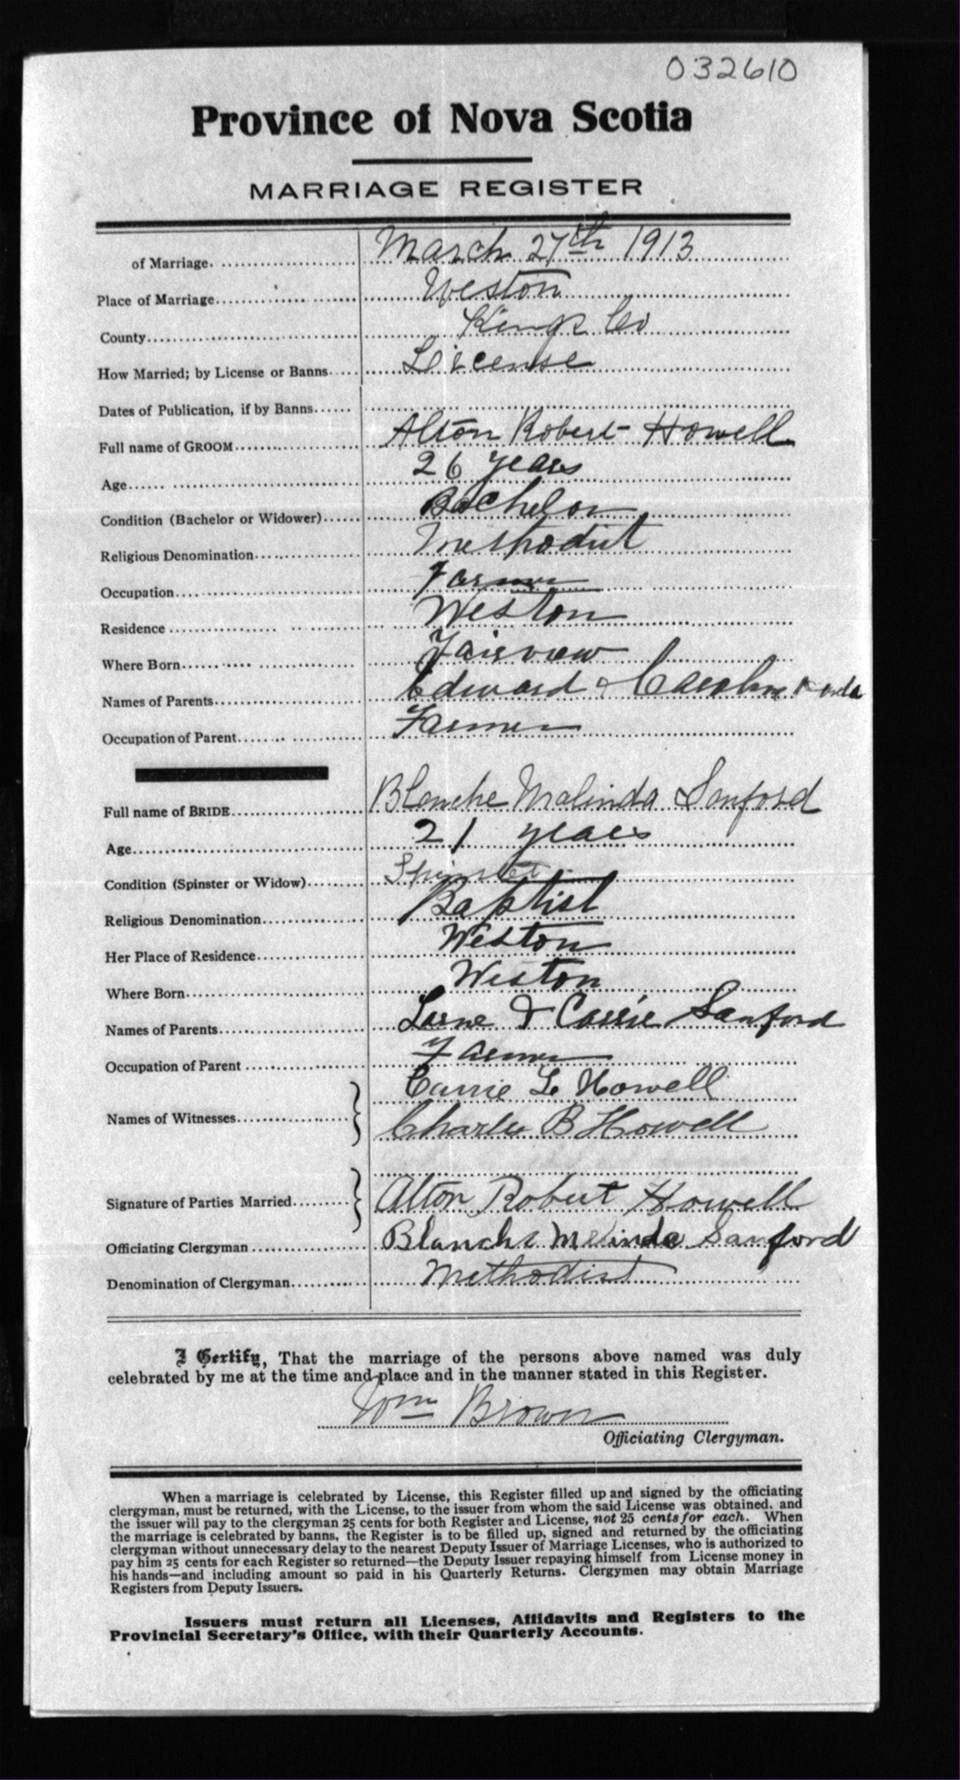 032610
Province of Nova Scotia
MARRIAGE REGISTER
of Marriage. March 27th 1913
Place of Marriage Weston
County Kings Co
How Married; by License or Banns License
Dates of Publication, if by Banns
Full name of GROOM Alton Robert Howell
Age 26 years
Condition (Bachelor or Widower) Bachelor
Religious Denomination Methodist
Occupation Farmer
Residence Weston
Where Born Fairview
Names of Parents Edward & Caroline
Occupation of Parent Farmer
Full name of BRIDE Blanche Malinda Sanford
Age 21 years
Condition (Spinster or Widow) Spinster
Religious Denomination Baptist
Her Place of Residence Weston
Where Born Weston
Names of Parents Lorne & Cassie Sanford
Occupation of Parent Farmer
Carrie L Howell
Names of Witnesses
Charlie B Howell
Signature of Parties Married Alton Robert Howell
Officiating Clergyman Blanche Melinda Sanford
Denomination of Clergyman Methodist
I Certify, That the marriage of the persons above named was duly
celebrated by me at the time and place and in the manner stated in this Register.
Wm Brown
Officiating Clergyman.
When a marriage is celebrated by License, this Register filled up and signed by the officiating
clergyman, must be returned, with the License, to the issuer from whom the said License was obtained, and
the issuer will pay to the clergyman 25 cents for both Register and License, not 25 cents for each. When
the marriage is celebrated by banns, the Register is to be filled up, signed and returned by the officiating
clergyman without unnecessary delay to the nearest Deputy Issuer of Marriage Licenses, who is authorized to
pay him 25 cents for each Register so returned—the Deputy Issuer repaying himself from License money in
his hands—and including amount so paid in his Quarterly Returns. Clergymen may obtain Marriage
Registers from Deputy Issuers.
Issuers must return all Licenses, Affidavits and Registers to the
Provincial Secretary's Office, with their Quarterly Accounts.